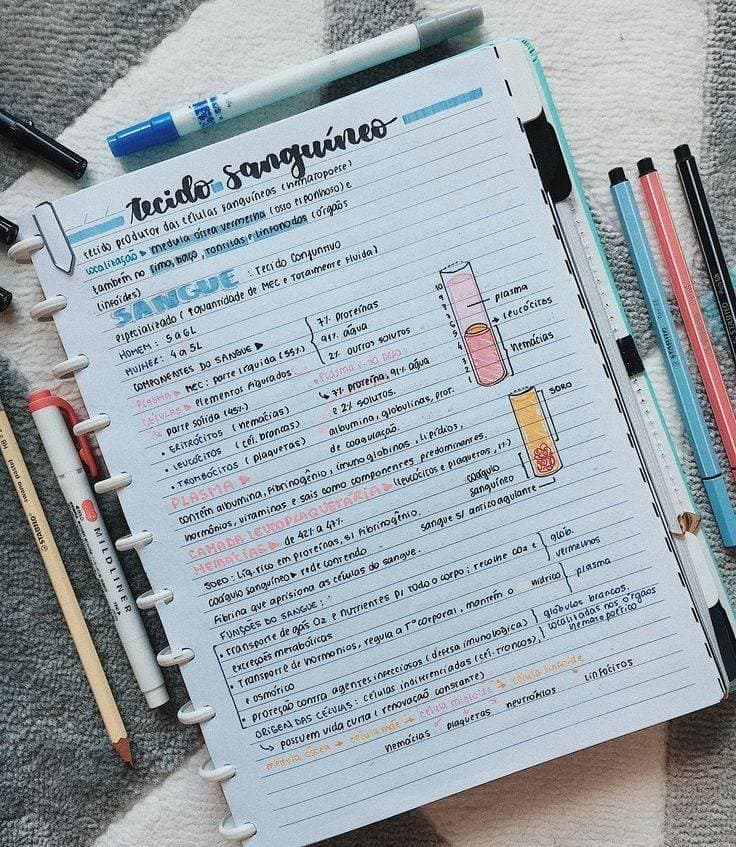 tecido sanguíneo
tecido produtor das células sanguíneas (hematopoese)
localização ▸ medula óssea vermelha (osso esponhoso) e
também no timo, baço, tonsilas e linfonodos (órgãos
linfoides)
SANGUE : Tecido conjuntivo
especializado (↑quantidade de MEC e totalmente fluida)
HOMEM: 5 a 6L
MULHER: 4 a 5L
COMPONENTES DO SANGUE ▸
7% proteínas
91% água
2% outros solutos
PLASMA ▸ MEC: parte líquida (55%)
CÉLULAS ▸ elementos figurados
↳ parte sólida (45%)
• ERITRÓCITOS (hemácias)
• LEUCÓCITOS (cél. brancas)
• TROMBÓCITOS (plaquetas)
• Plasma
↳ 7% proteína, 91% água
e 2% solutos.
albumina, globulinas, prot.
de coagulação.
10
9
8
7
6
5
4
3
2
1
plasma
leucócitos
hemácias
SORO
coágulo
sanguíneo
sangue s/ anticoagulante
PLASMA ▸
contém albumina, fibrinogênio, imunoglobinas, lipídios,
hormônios, vitaminas e sais como componentes predominantes.
CAMADA LEUCOPLAQUETÁRIA ▸ (leucócitos e plaquetas, 1%)
HEMÁCIAS ▸ de 42% a 47%
SORO: Líq. rico em proteínas, s/ fibrinogênio.
coágulo sanguíneo ▸ rede contendo
fibrina que aprisiona as células do sangue.
FUNÇÕES DO SANGUE:
• Transporte de gás O2 e nutrientes p/ todo o corpo; recolhe CO2 e
excreções metabólicas
glób.
vermelhos
• Transporte de hormônios, regula a T° corporal, mantém o hídrico
e osmótico
plasma
• proteção contra agentes infecciosos (defesa imunológica)
glóbulos brancos,
localizadas nos órgãos
hematopoético
ORIGEM DAS CÉLULAS: células indiferenciadas (cél-tronco),
↳ possuem vida curta (renovação constante)
medula óssea → célula mãe → célula mieloide → célula linfoide
hemácias plaquetas neutrófilos linfócitos
MILDLINER
STABILO